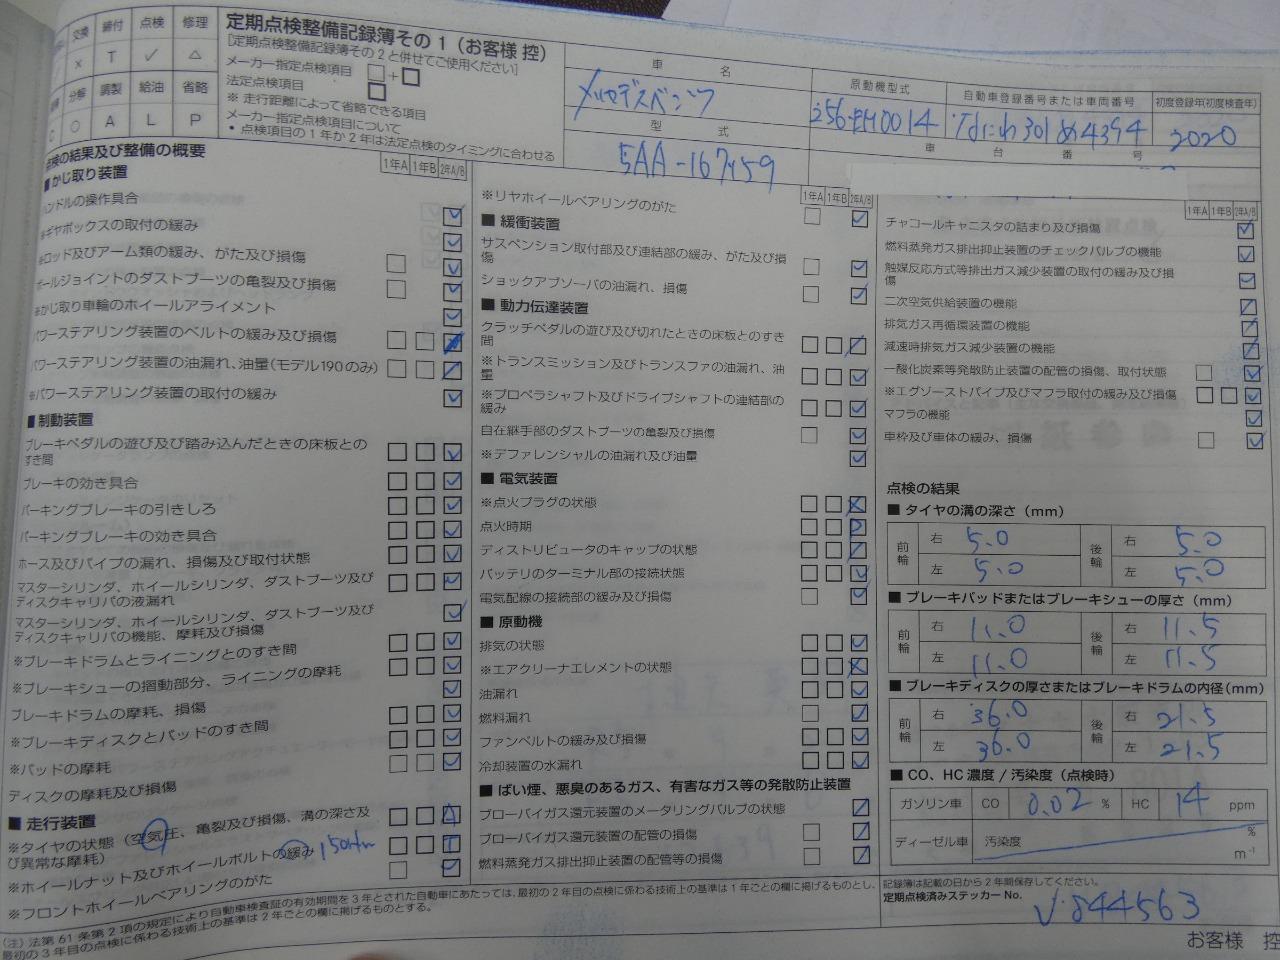 交換 締付 点検 修理
× T ✓ △
分解 調製 給油 省略
C ○ A L P
定期点検整備記録簿その1（お客様 控）
[定期点検整備記録簿その2と併せてご使用ください]
メーカー指定点検項目 □+□
法定点検項目 □
※ 走行距離によって省略できる項目
メーカー指定点検項目について
• 点検項目の1年か2年は法定点検のタイミングに合わせる
車名
メルセデスベンツ
原動機型式
自動車登録番号または車両番号
なにわ301 め4394
初度登録年(初度検査年)
2020
型式
5AA-167159
車台番号
点検の結果及び整備の概要
1年A 1年B 2年A/B
■ かじ取り装置
ハンドルの操作具合
※ギヤボックスの取付の緩み
※ロッド及びアーム類の緩み、がた及び損傷
ボールジョイントのダストブーツの亀裂及び損傷
※かじ取り車輪のホイールアライメント
パワーステアリング装置のベルトの緩み及び損傷
パワーステアリング装置の油漏れ、油量(モデル190のみ)
※パワーステアリング装置の取付の緩み
■ 制動装置
ブレーキペダルの遊び及び踏み込んだときの床板との
すき間
ブレーキの効き具合
パーキングブレーキの引きしろ
パーキングブレーキの効き具合
ホース及びパイプの漏れ、損傷及び取付状態
マスターシリンダ、ホイールシリンダ、ダストブーツ及び
ディスクキャリパの液漏れ
マスターシリンダ、ホイールシリンダ、ダストブーツ及び
ディスクキャリパの機能、摩耗及び損傷
※ブレーキドラムとライニングとのすき間
※ブレーキシューの摺動部分、ライニングの摩耗
ブレーキドラムの摩耗、損傷
※ブレーキディスクとパッドのすき間
※パッドの摩耗
ディスクの摩耗及び損傷
■ 走行装置
※タイヤの状態（空気圧、亀裂及び損傷、溝の深さ及
び異常な摩耗） A
※ホイールナット及びホイールボルトの緩み T
※フロントホイールベアリングのがた
1年A 1年B 2年A/B
※リヤホイールベアリングのがた
■ 緩衝装置
サスペンション取付部及び連結部の緩み、がた及び損
傷
ショックアブソーバの油漏れ、損傷
■ 動力伝達装置
クラッチペダルの遊び及び切れたときの床板とのすき
間
※トランスミッション及びトランスファの油漏れ、油
量
※プロペラシャフト及びドライブシャフトの連結部の
緩み
自在継手部のダストブーツの亀裂及び損傷
※デファレンシャルの油漏れ及び油量
■ 電気装置
※点火プラグの状態 ×
点火時期 P
ディストリビュータのキャップの状態
バッテリのターミナル部の接続状態
電気配線の接続部の緩み及び損傷
■ 原動機
排気の状態
※エアクリーナエレメントの状態 ×
油漏れ
燃料漏れ
ファンベルトの緩み及び損傷
冷却装置の水漏れ
■ ばい煙、悪臭のあるガス、有害なガス等の発散防止装置
ブローバイガス還元装置のメータリングバルブの状態
ブローバイガス還元装置の配管の損傷
燃料蒸発ガス排出抑止装置の配管等の損傷
1年A 1年B 2年A/B
チャコールキャニスタの詰まり及び損傷
燃料蒸発ガス排出抑止装置のチェックバルブの機能
触媒反応方式等排出ガス減少装置の取付の緩み及び損
傷
二次空気供給装置の機能
排気ガス再循環装置の機能
減速時排気ガス減少装置の機能
一酸化炭素等発散防止装置の配管の損傷、取付状態
※エグゾーストパイプ及びマフラ取付の緩み及び損傷
マフラの機能
車枠及び車体の緩み、損傷
点検の結果
■ タイヤの溝の深さ（mm）
前輪 右 5.0 後輪 右 5.0
左 5.0 左 5.0
■ ブレーキパッドまたはブレーキシューの厚さ（mm）
前輪 右 11.0 後輪 右 11.5
左 11.0 左 11.5
■ ブレーキディスクの厚さまたはブレーキドラムの内径(mm)
前輪 右 36.0 後輪 右 21.5
左 36.0 左 21.5
■ CO、HC 濃度 / 汚染度（点検時）
ガソリン車 CO 0.02 % HC 14 ppm
ディーゼル車 汚染度 % m⁻¹
記録簿は記載の日から2年間保存してください。
定期点検済みステッカー No.
844563
（注）法第61条第2項の規定により自動車検査証の有効期間を3年とされた自動車にあたっては、最初の2年目の点検に係わる技術上の基準は1年ごとの欄に掲げるものとし、
最初の3年目の点検に係わる技術上の基準は2年ごとの欄に掲げるものとする。
お客様 控